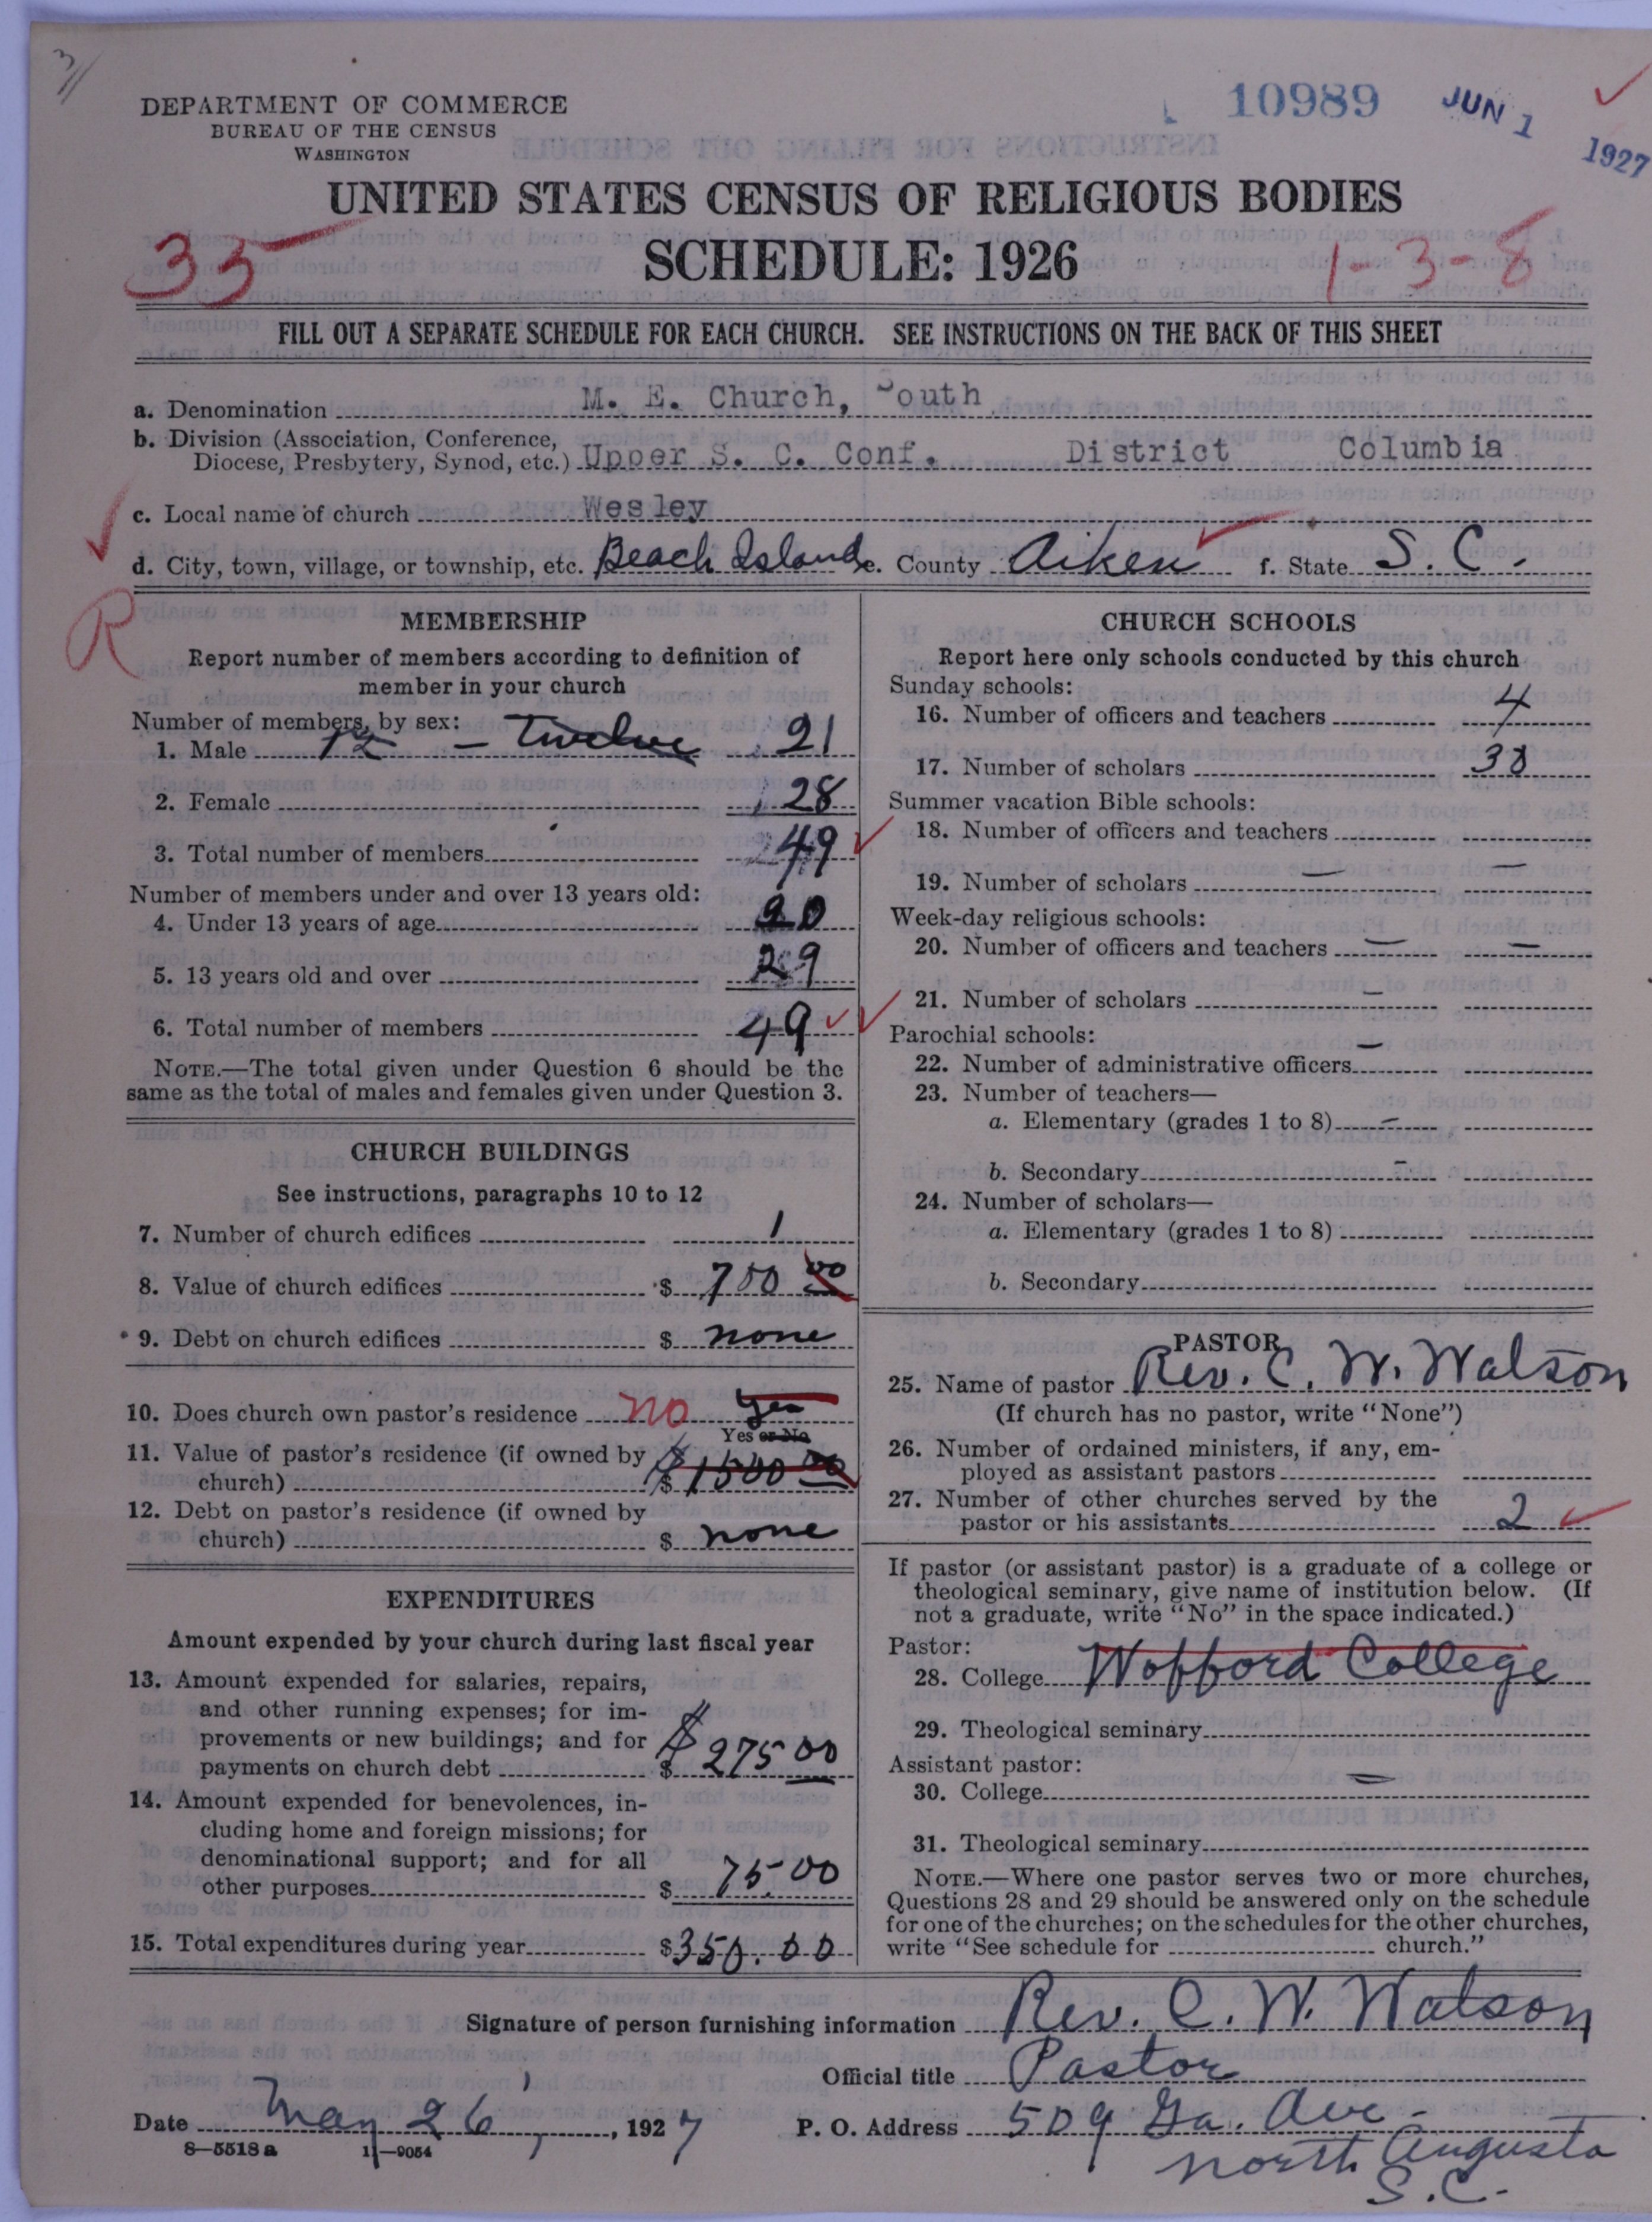 3
DEPARTMENT OF COMMERCE
BUREAU OF THE CENSUS
WASHINGTON
10989
JUN 1 1927
UNITED STATES CENSUS OF RELIGIOUS BODIES
SCHEDULE: 1926
35
1-3-8
FILL OUT A SEPARATE SCHEDULE FOR EACH CHURCH. SEE INSTRUCTIONS ON THE BACK OF THIS SHEET
a. Denomination M. E. Church, South
b. Division (Association, Conference,
Diocese, Presbytery, Synod, etc.) Upper S. C. Conf. District Columbia
c. Local name of church Wesley
d. City, town, village, or township, etc. Beach Island e. County Aiken f. State S. C.
R
MEMBERSHIP
Report number of members according to definition of
member in your church
Number of members, by sex:
1. Male 12 - Twelve 21
2. Female 28
3. Total number of members 49
Number of members under and over 13 years old:
4. Under 13 years of age 20
5. 13 years old and over 29
6. Total number of members 49
NOTE.—The total given under Question 6 should be the
same as the total of males and females given under Question 3.
CHURCH BUILDINGS
See instructions, paragraphs 10 to 12
7. Number of church edifices 1
8. Value of church edifices $ 700 00
9. Debt on church edifices $ none
10. Does church own pastor's residence no yes
Yes or No
11. Value of pastor's residence (if owned by
church) $ $1500 00
12. Debt on pastor's residence (if owned by
church) $ none
EXPENDITURES
Amount expended by your church during last fiscal year
13. Amount expended for salaries, repairs,
and other running expenses; for im-
provements or new buildings; and for
payments on church debt $ $275 00
14. Amount expended for benevolences, in-
cluding home and foreign missions; for
denominational support; and for all
other purposes $ 75.00
15. Total expenditures during year $350.00
CHURCH SCHOOLS
Report here only schools conducted by this church
Sunday schools:
16. Number of officers and teachers 4
17. Number of scholars 38
Summer vacation Bible schools:
18. Number of officers and teachers
19. Number of scholars — —
Week-day religious schools:
20. Number of officers and teachers — —
21. Number of scholars —
Parochial schools:
22. Number of administrative officers —
23. Number of teachers—
a. Elementary (grades 1 to 8) —
b. Secondary —
24. Number of scholars—
a. Elementary (grades 1 to 8)
b. Secondary
PASTOR
25. Name of pastor Rev. C. W. Watson
(If church has no pastor, write "None")
26. Number of ordained ministers, if any, em-
ployed as assistant pastors
27. Number of other churches served by the
pastor or his assistants 2
If pastor (or assistant pastor) is a graduate of a college or
theological seminary, give name of institution below. (If
not a graduate, write "No" in the space indicated.)
Pastor:
28. College Wofford College
29. Theological seminary
Assistant pastor:
30. College —
31. Theological seminary
NOTE.—Where one pastor serves two or more churches,
Questions 28 and 29 should be answered only on the schedule
for one of the churches; on the schedules for the other churches,
write "See schedule for church."
Signature of person furnishing information Rev. C. W. Watson
Official title Pastor
Date May 26, 1927 P. O. Address 509 Ga. Ave.
North Augusta
S.C.
8—5518 a 11—9054